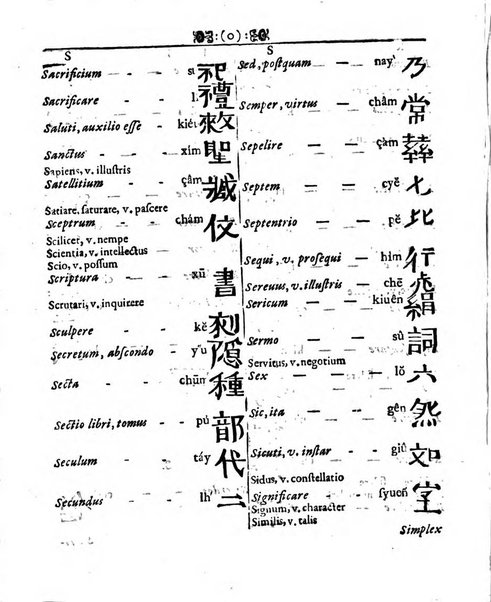 :(0):
S
Sacrificium — — sú 祀
Sacrificare — — lì 禮
Saluti, auxilio esse — kiéu 救
Sanctus — — xím 聖
Sapiens, v. illustris
Satellitium — — çâm 臧
Satiare, saturare, v. pascere
Sceptrum — — chám 仗
Scilicet, v. nempe
Scientia, v. intellectus
Scio, v. possum
Scriptura — — xū 書
Scrutari, v. inquirere
Sculpere — — kĕ 刻
Secretum, abscondo — yu 隱
Secta — — chùn 種
Sectio libri, tomus — pú 部
Seculum — — táy 代
Secundus — — lh 二
S
Sed, postquam — nay 乃
Semper, virtus — châm 常
Sepelire — — çám
Septem — — cyĕ 七
Septentrio — — pĕ 北
Sequi, v. prosequi — him 行
Sereuus, v. illustris — chĕ
Sericum — — kiuén 絹
Sermo — — sû 詞
Servitus, v. negotium
Sex — — lŏ 六
Sic, ita — — gên 然
Sicuti, v. instar — giû 如
Sidus, v. constellatio
Significare — syuen
Signum, v. character
Similis, v. talis
Simplex